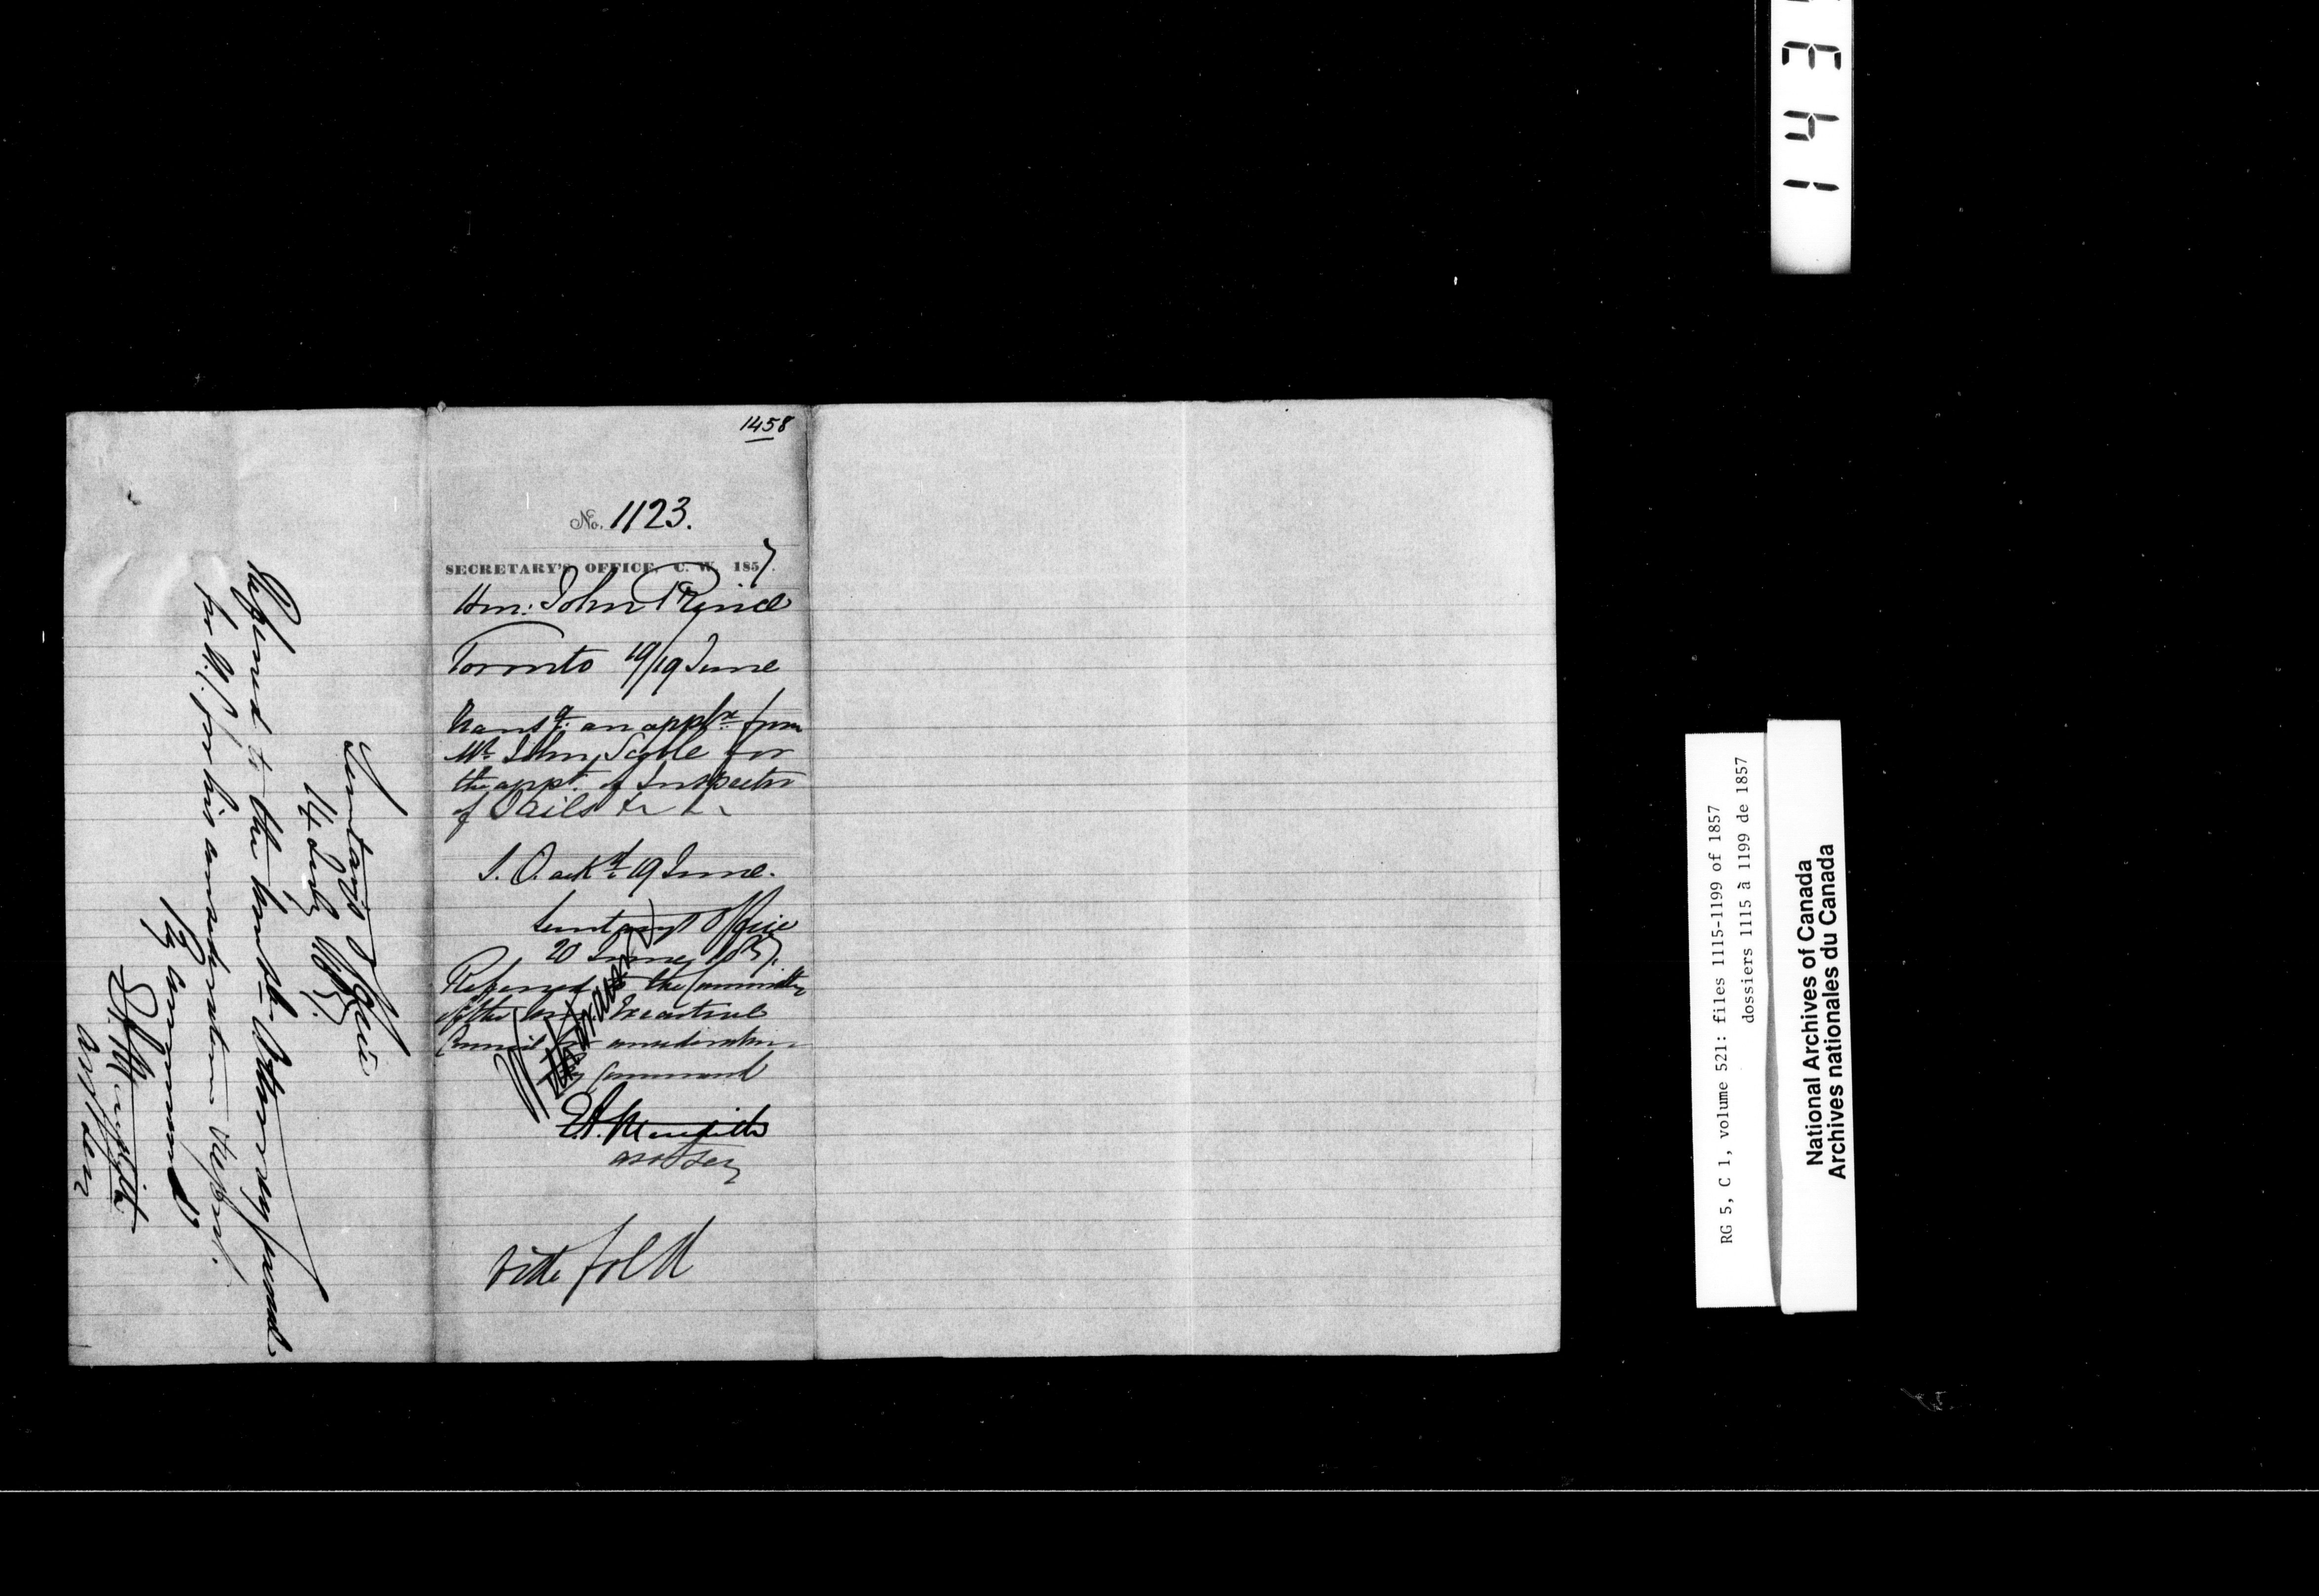 1458
No. 1123.
SECRETARY'S OFFICE, C. W. 1857.
Hon: John Prince
Toronto 19/19 June
Transg. an appln. from
Mr. John Scoble for
the appt. of Inspector
of Jails &c &c
S. O. ackd. 19 June.
Secretary's Office
20 June 1857.
Referred to the Committee
of the Hon. Executive
Council for consideration
By Command
E.A. Meredith
Asst Secy
vide fold
Secretary's Office
14 July 1857.
Referred to the honble. Attorney General
for U.C. for his consideration & report.
By Command
E.A. Meredith
Asst Secy
1 4 3
RG 5, C 1, volume 521: files 1115-1199 of 1857
dossiers 1115 à 1199 de 1857
National Archives of Canada
Archives nationales du Canada